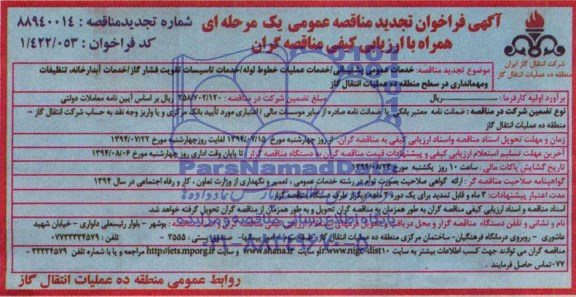 آگهی فراخوان تجدید مناقصه عمومی یک مرحله ای
همراه با ارزیابی کیفی مناقصه گران
شماره تجدیدمناقصه : ۸۸۹۴۰۰۱۴
کد فراخوان : ۱/۴۲۲/۰۵۳
شرکت انتقال گاز ایران
منطقه ده عملیات انتقال گاز
موضوع تجدید مناقصه: خدمات عمومی /خدمات عملیات خطوط لوله/خدمات تاسیسات تقویت فشار گاز/خدمات آبدارخانه، تنظیفات
ومهمانداری در سطح منطقه ده عملیات انتقال گاز
برآورد اولیه کارفرما : ریال مبلغ تضمین شرکت در مناقصه : ۲۵۸/۲۰۲/۱۲۰ ریال بر اساس آیین نامه معاملات دولتی
نوع تضمین شرکت در مناقصه : ضمانت نامه معتبر بانکی یا ضمانت نامه صادره از سایر موسسات مالی / اعتباری مورد تأیید بانک مرکزی و یا واریز وجه نقد به حساب شرکت انتقال گاز –
منطقه ده عملیات انتقال گاز
زمان و مهلت تحویل اسناد مناقصه واسناد ارزیابی کیفی به مناقصه گران: از روز چهارشنبه مورخ ۱۳۹۴/۰۷/۱۵ لغایت روزچهارشنبه مورخ ۱۳۹۴/۰۷/۲۲
آخرین مهلت تسلیم استعلام ارزیابی کیفی و پیشنهادات قیمت مناقصه گران به دستگاه مناقصه گزار : تا پایان وقت اداری روز چهارشنبه مورخ ۱۳۹۴/۰۸/۰۶
تاریخ گشایش پاکات مالی : ساعت ۱۰ روز یکشنبه مورخ
گواهینامه صلاحیت مناقصه گر : ارائه گواهی صلاحیت بصورت توام در رشته خدمات عمومی ، تعمیر و نگهداری از وزارت تعاون ، کار و رفاه اجتماعی در سال ۱۳۹۴
مدت اعتبار پیشنهادات: ۳ ماه و قابل تمدید برای یک دوره ۳ ماهه دیگر از طرف دستگاه مناقصه گزار
اسناد مناقصه و اسناد ارزیابی کیفی مناقصه گران به طور همزمان به مناقصه گران تحویل و به طور همزمان از مناقصه گران تحویل گرفته خواهد شد.
نام و نشانی و تلفن دستگاه مناقصه گزار و محل دریافت بوشهر – بلوار رئیسعلی دلواری – خیابان شهید
عاشوری – روبروی درمانگاه فرهنگیان- ساختمان مرکزی منطقه ده عملیات انتقال گاز ۳۵۵۵ - تلفن : ۰۷۷۳۳۳۳۴۵۷۹
مناقصه گران می توانند جهت کسب اطلاعات بیشتر به سایت www.nigc-dist10.ir وی سایت www.shana.ir وی سایت http://iets.mporg.ir مراجعه و یا با شماره تلفن ۳۳۳۳۴۵۷۹ -
۰۷۷تماس حاصل فرمایند .
روابط عمومی منطقه ده عملیات انتقال گاز
ParsNamadData